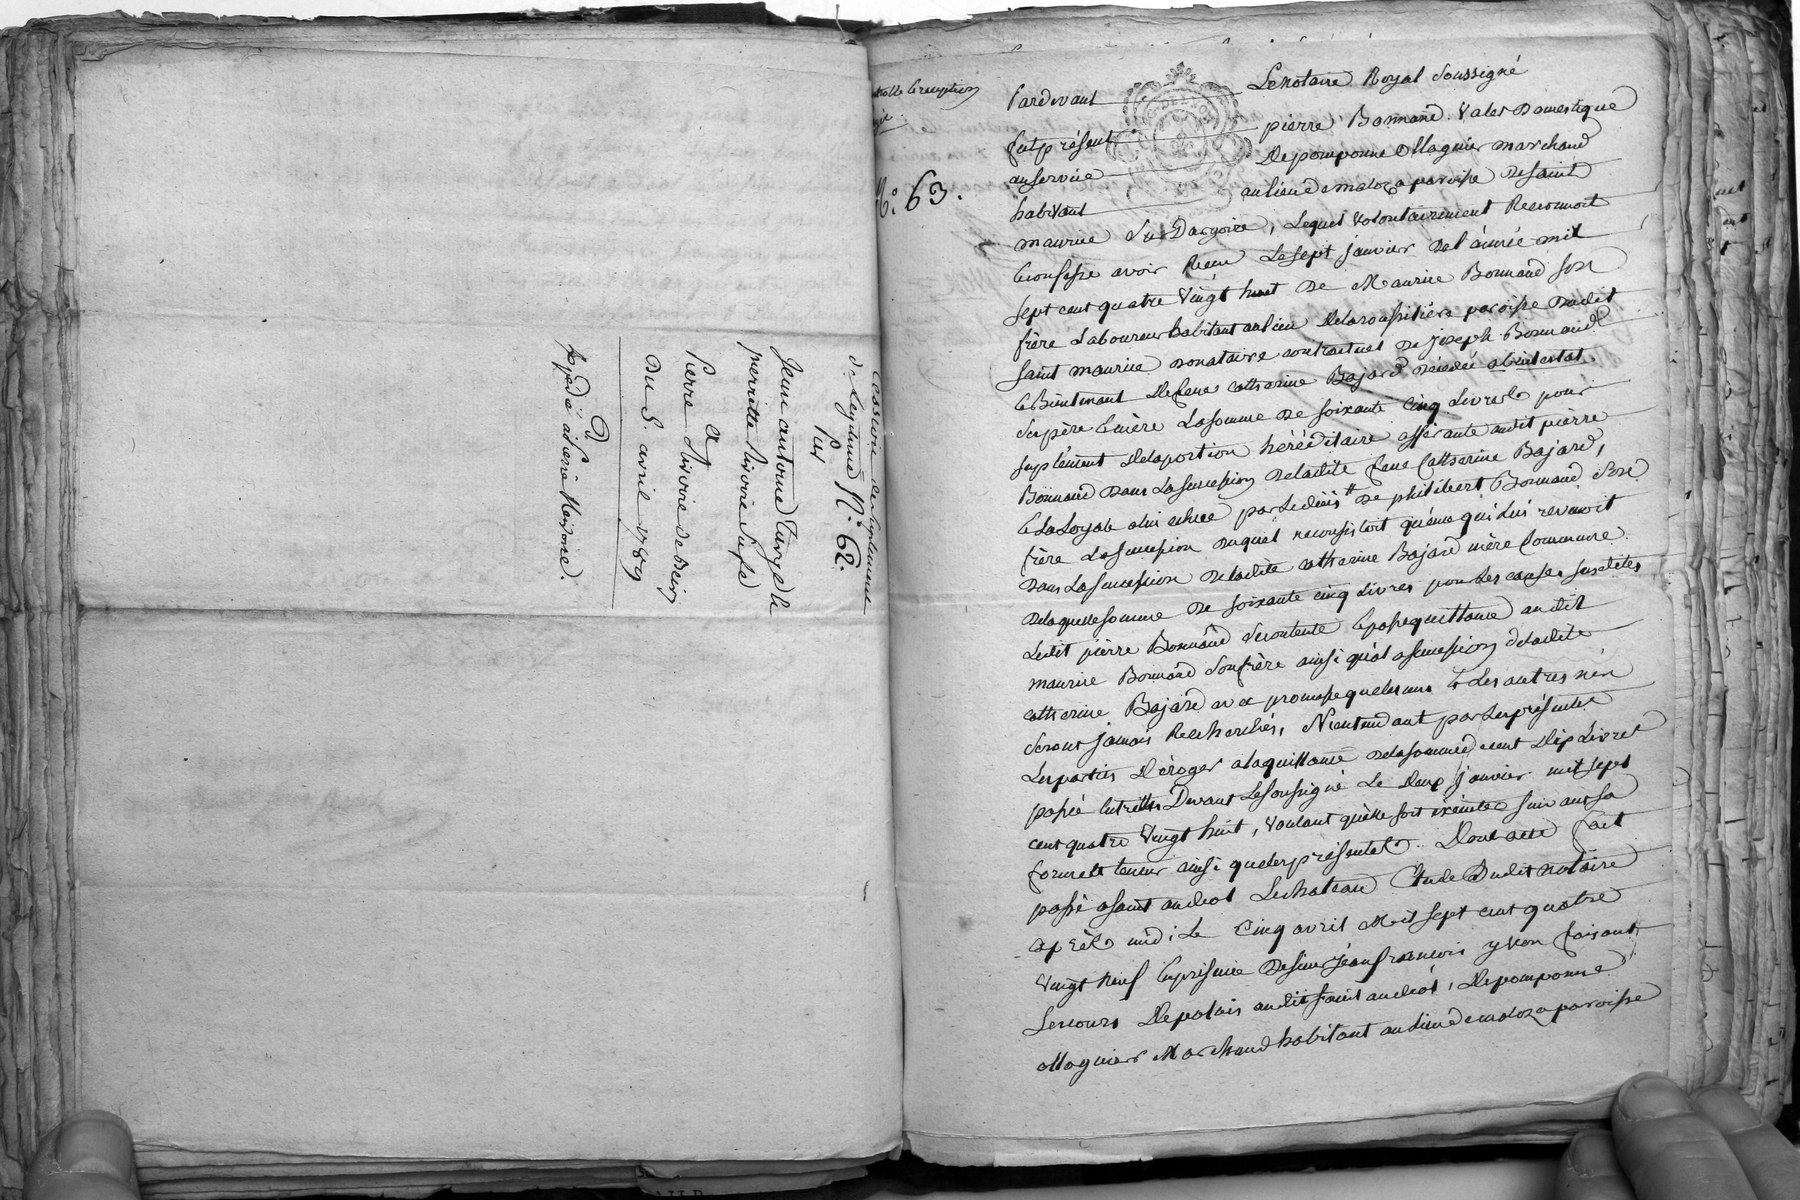 Cession de suplement
de legitime N.° 62.
par
Jeune antoine
pierrette Livoire
a
Pierre Livoire de
Du 5. avril 1789
N.° 63.
Pardevant Le notaire Royal soussigné
fut présent pierre Bonnand valet Domestique
au service De pomponne Magnier marchand
habitant au lieu paroisse De saint
maurice sur Dargoire, Lequel volontairement Reconnoit
& confesse avoir Reçu Le sept janvier De l'année mil
sept cent quatre vingt huit De Maurice Bonnand son
frère Laboureur habitant au lieu De paroisse Dudit
saint maurice Donataire contractuel De joseph Bonnand
& Bientenant De feue catherine Bajard décédée abintestat
ses père & mère La somme De soixante Cinq Livres pour
suplément De la portion héréditaire afférante audit pierre
Bonnand Dans La succession De ladite feue Catherine Bajard,
& La Loyale a lui echue par le décès De philibert Bonnand son
frère La succession Duquel ne consistoit qu'en ce qui lui revenoit
Dans La succession De ladite catherine Bajard mère Commune
De laquelle somme De soixante cinq Livres pour Les causes susdites
Ledit pierre Bonnand se contente & passe quittance audit
maurice Bonnand son frère ainsi qu'a la succession de ladite
catherine Bajard avec promesse que les uns & Les autres n'en
seront jamais Recherchés, N'entendant par Les présentes
Les parties Déroger a la quittance De la somme de cent Dix Livres
passée entre elles Devant Le soussigné Le Deux janvier mil sept
cent quatre vingt huit, voulant qu'elle soit exécutée suivant sa
forme & teneur ainsi que les présentes. Dont acte fait
passé a saint andeol Le chateau Etude Dudit notaire
après midi Le Cinq avril Mil sept cent quatre
vingt neuf En présence De sieur jean francois yvon faisant
Les cours De palais audit saint andeol, De pomponne
Magnier Marchand habitant au lieu paroisse